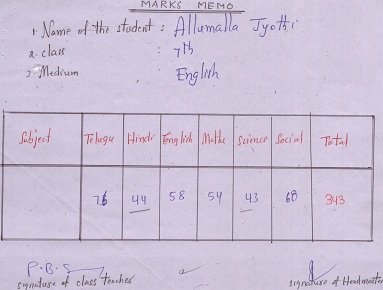 MARKS MEMO
1. Name of the student : Allumalla Jyothi
2. class : 7th
3. Medium : English
Subject Telugu Hindi English Maths Science Social Total
76 44 58 54 43 68 343
P.B.S
signature of class teacher
signature of Headmaster